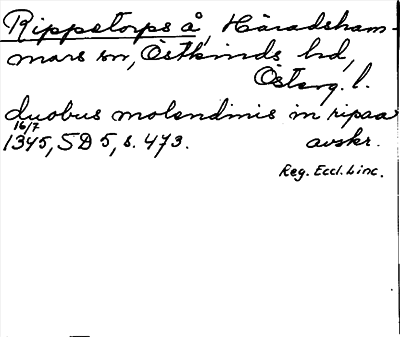 Rippstorps å, Häradsham-
mars sn, Östkinds hd,
Österg. l.
duobus molendinis in ripaa
16/7
1345, SD 5, s. 473. avskr.
Reg. Eccl. Linc.